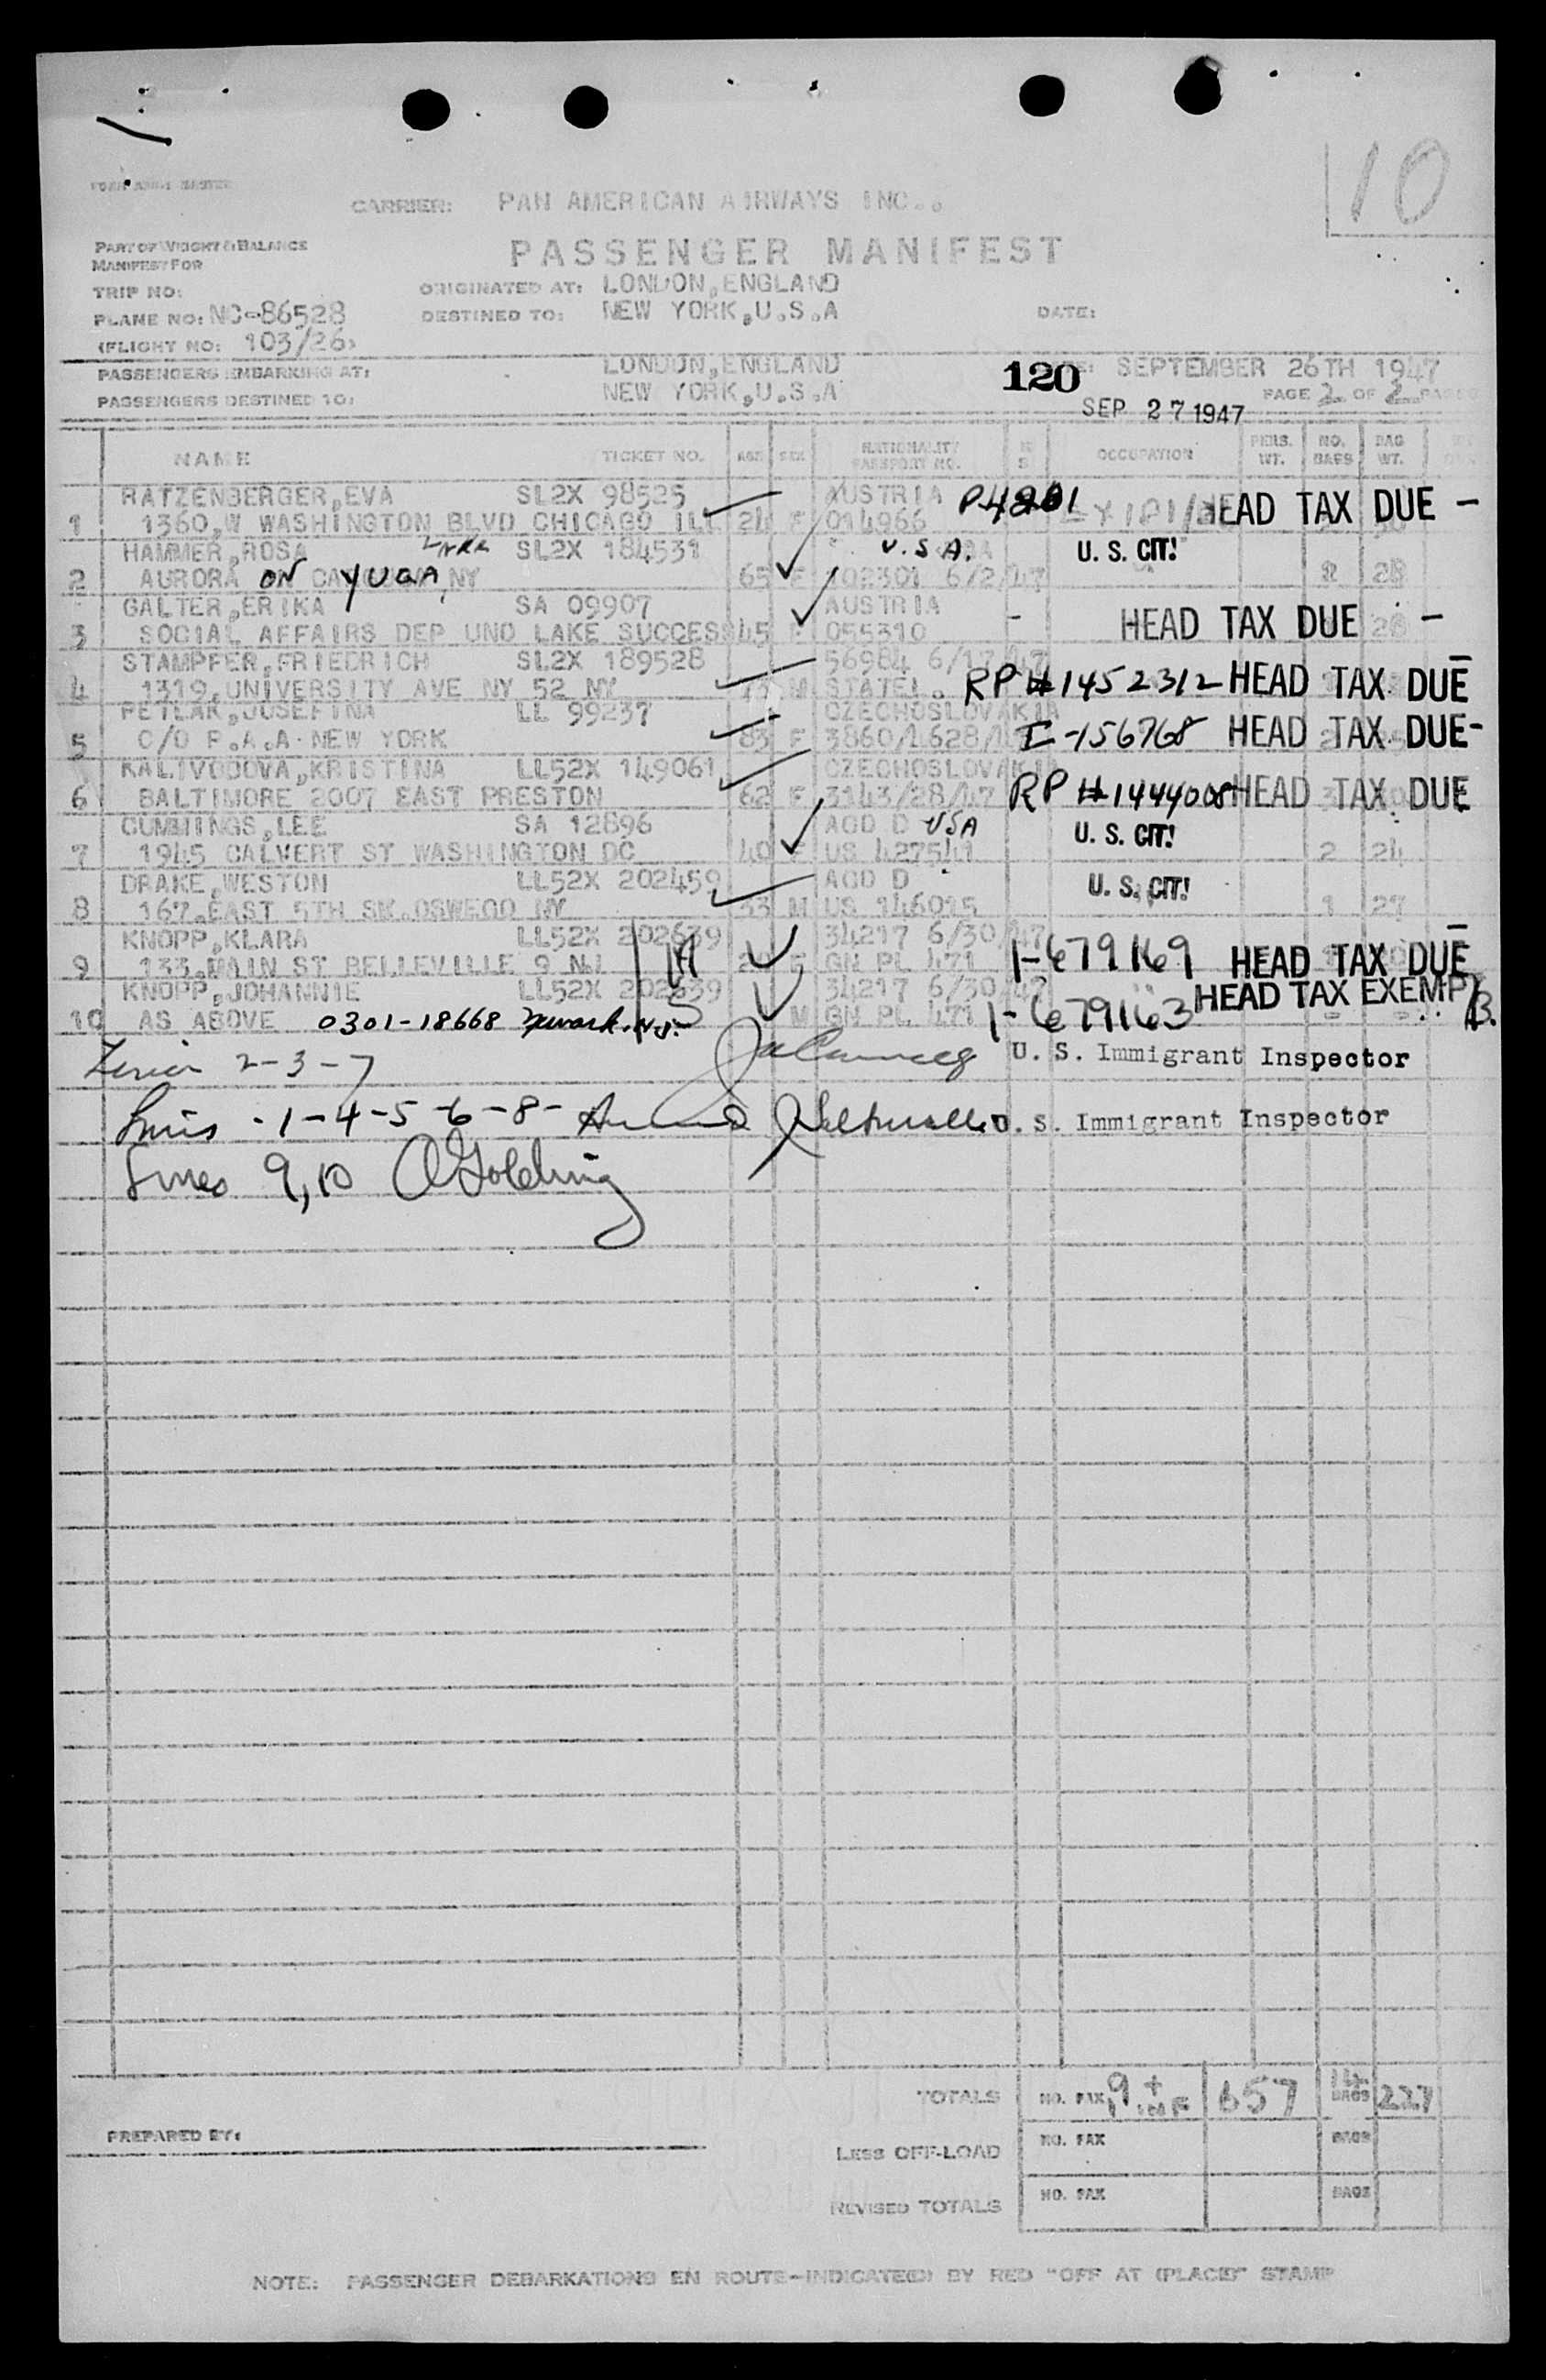 10
CARRIER: PAN AMERICAN AIRWAYS INC.
PART OF WEIGHT & BALANCE
MANIFEST FOR
PASSENGER MANIFEST
TRIP NO:
ORIGINATED AT: LONDON, ENGLAND
PLANE NO: NC-86528
DESTINED TO: NEW YORK, U.S.A
DATE:
(FLIGHT NO: 103/26)
PASSENGERS EMBARKING AT: LONDON, ENGLAND
120 SEPTEMBER 26TH 1947
PASSENGERS DESTINED TO: NEW YORK, U.S.A
SEP 27 1947
PAGE 2 OF 2 PAGES
NAME TICKET NO. AGE SEX NATIONALITY PASSPORT NO. OCCUPATION PERS. WT. NO. BAGS BAG WT.
RATZENBERGER, EVA SL2X 98525 AUSTRIA P4201
1 1360, W WASHINGTON BLVD CHICAGO ILL 24 F 014966 HEAD TAX DUE -
HAMMER, ROSA SL2X 184531 U.S.A. U. S. CIT!
2 AURORA ON CAYUGA, NY 65 F 102301 6/2/47 2 28
GALTER, ERIKA SA 09907 AUSTRIA
3 SOCIAL AFFAIRS DEP UNO LAKE SUCCESS 45 F 055310 - HEAD TAX DUE -
STAMPFER, FRIEDRICH SL2X 189528 56984 6/17/47
4 1319, UNIVERSITY AVE NY 52 NY M STATEL. RP # 1452312 HEAD TAX DUE
PETLAK, JOSEFINA LL 99237 CZECHOSLOVAKIA
5 C/O P.A.A. NEW YORK 83 F 3860/1628/ I-156768 HEAD TAX DUE-
KALIVODOVA, KRISTINA LL52X 149061 CZECHOSLOVAKIA
6 BALTIMORE 2007 EAST PRESTON 62 F 3143/28/47 RP # 1444008 HEAD TAX DUE
CUMMINGS, LEE SA 12896 ACD D USA U. S. CIT!
7 1945 CALVERT ST WASHINGTON DC 40 F US 427541 2 24
DRAKE, WESTON LL52X 202459 ACD D U. S. CIT!
8 167, EAST 5TH OSWEGO NY 33 M US 146015 1 27
KNOPP, KLARA LL52X 202639 34217 6/30/47
9 133, MAIN ST BELLEVILLE 9 NJ F GN PL 471 I-679169 HEAD TAX DUE
KNOPP, JOHANNIE LL52X 202639 34217 6/30/47 HEAD TAX EXEMPT
10 AS ABOVE 0301-18668 Newark, N.J. M GN PL 471 I-679163
2-3-7 U. S. Immigrant Inspector
Lines -1-4-5-6-8- U. S. Immigrant Inspector
Lines 9,10 Golding
TOTALS NO. PAX 9 + 1 INF 657 14 BAGS 227
PREPARED BY:
LESS OFF-LOAD NO. PAX BAGS
REVISED TOTALS NO. PAX BAGS
NOTE: PASSENGER DEBARKATIONS EN ROUTE-INDICATE(D) BY RED "OFF AT (PLACE)" STAMP